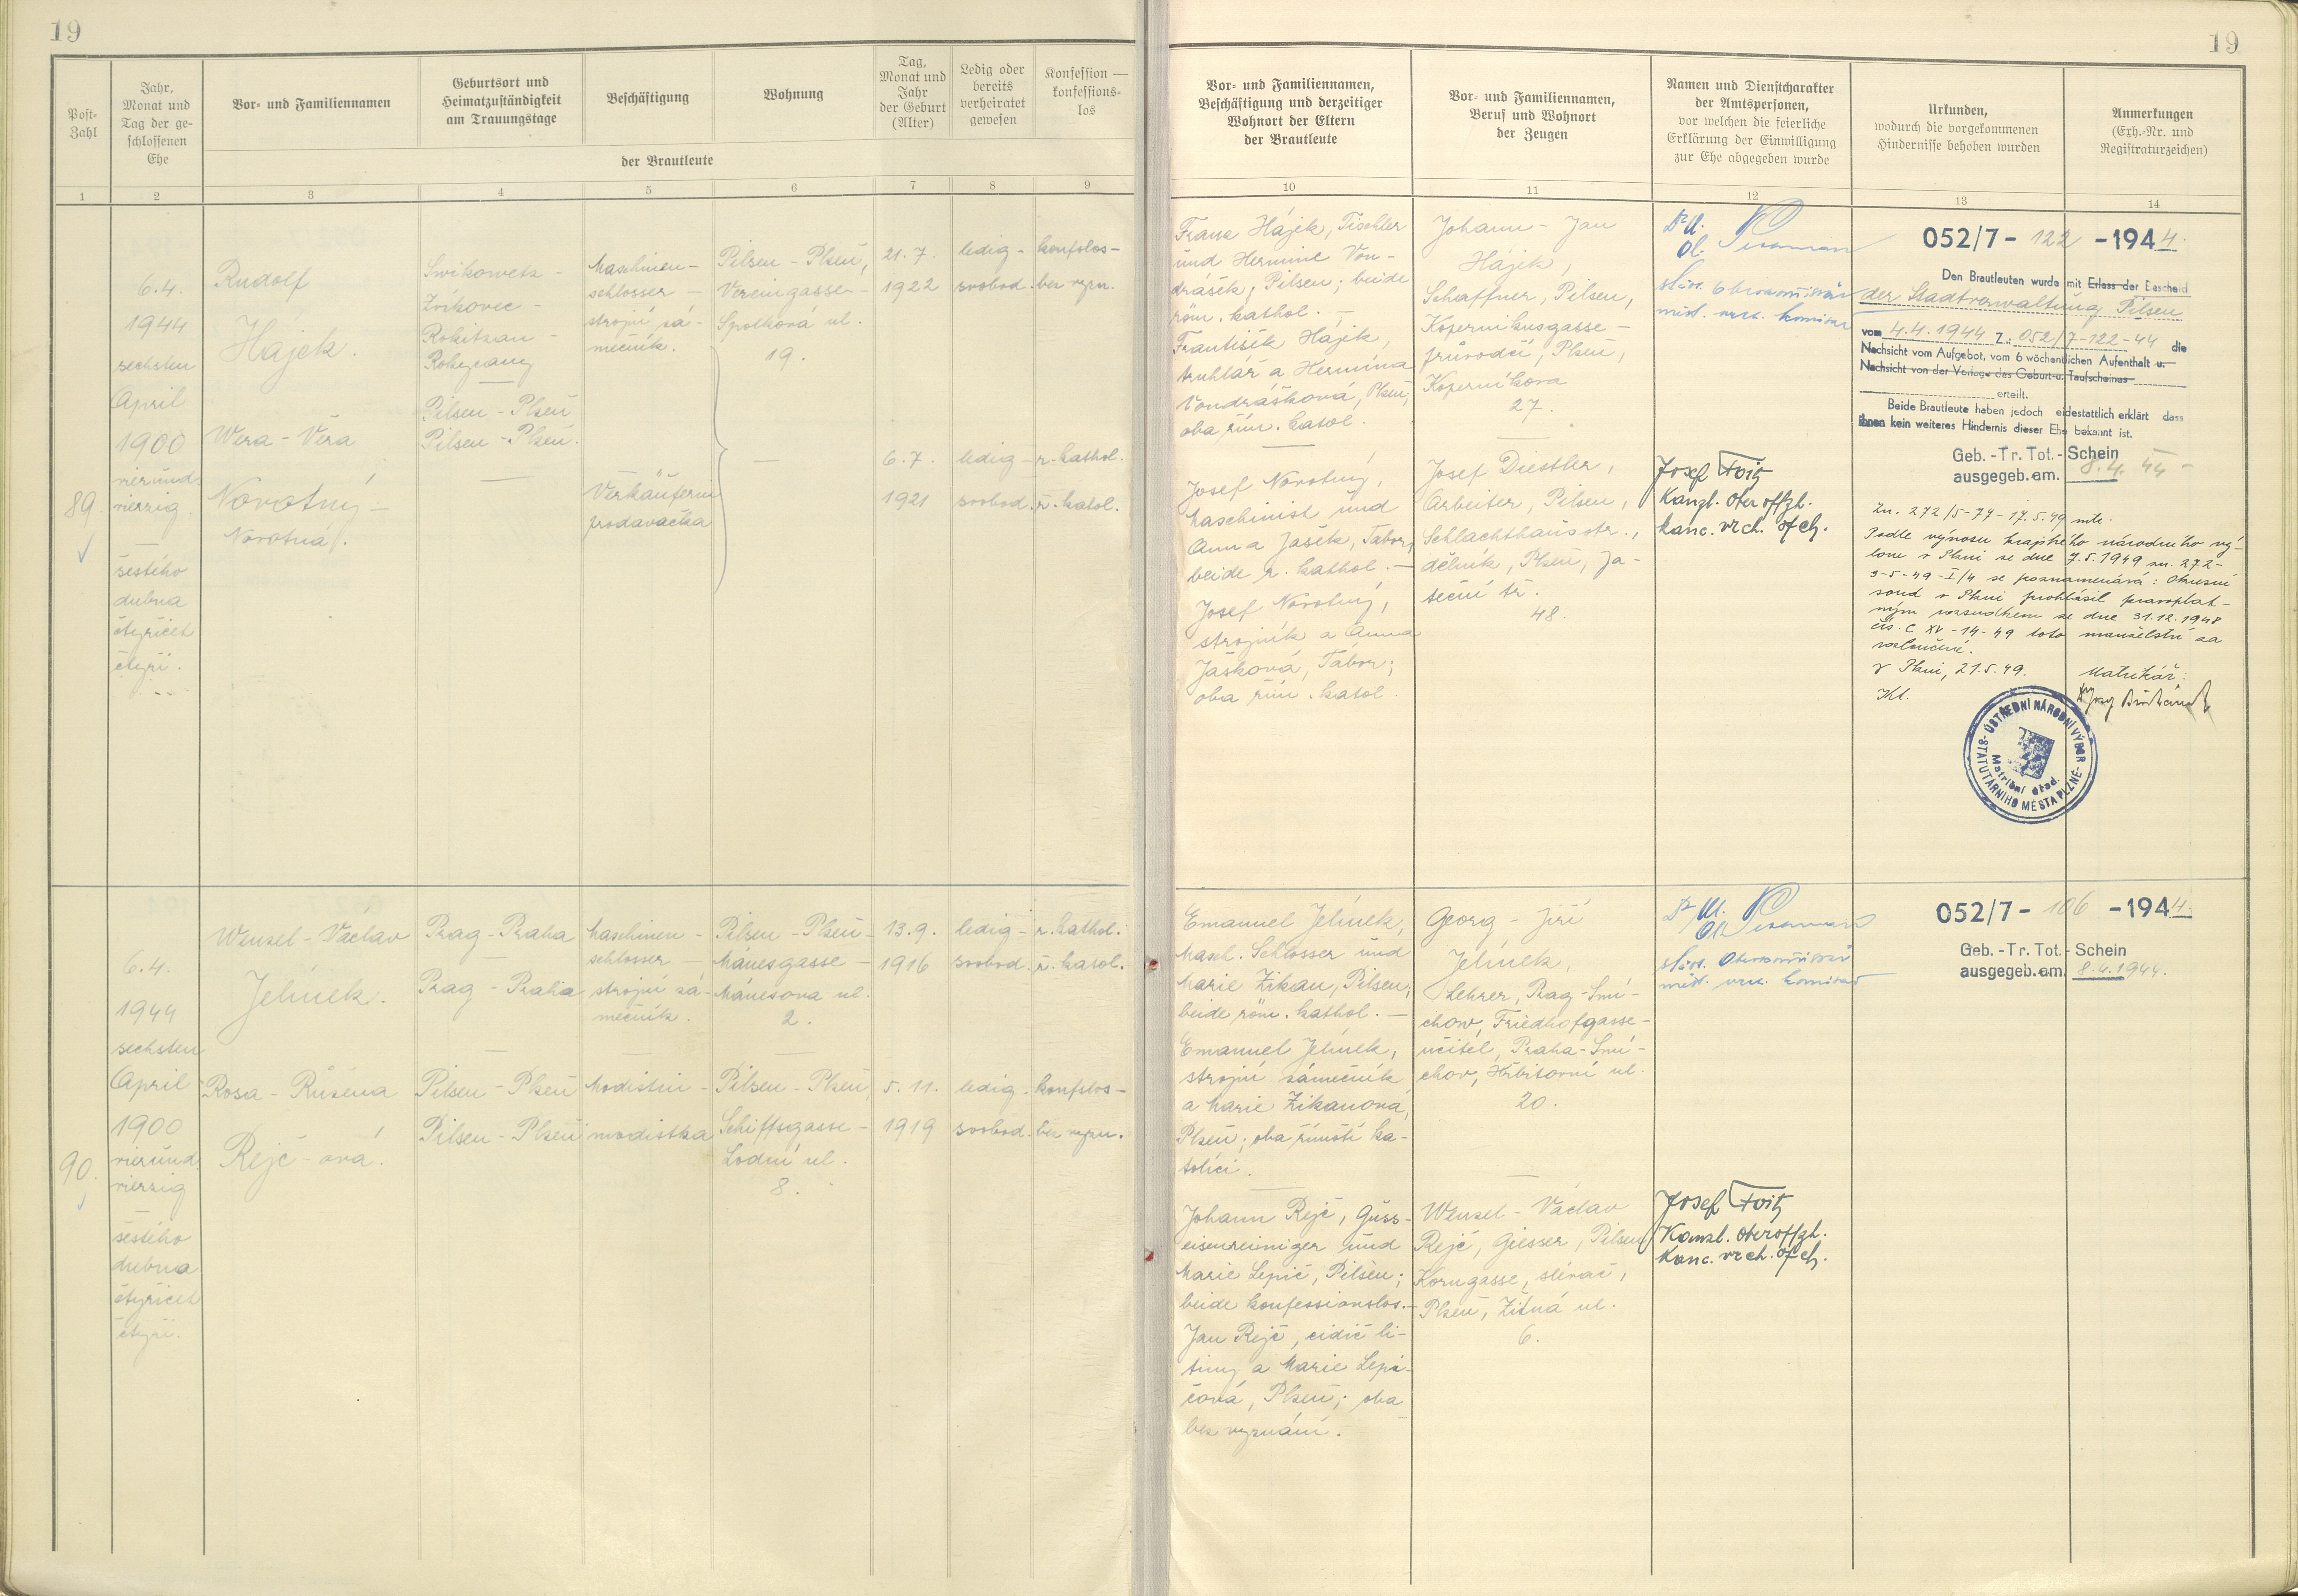 19
19
Post-
Zahl
Jahr,
Monat und
Tag der ge-
schlossenen
Ehe
Vor- und Familiennamen
Geburtsort und
Heimatzuständigkeit
am Trauungstage
Beschäftigung
Wohnung
Tag,
Monat und
Jahr
der Geburt
(Alter)
Ledig oder
bereits
verheiratet
gewesen
Konfession —
konfessions-
los
der Brautleute
Vor- und Familiennamen,
Beschäftigung und derzeitiger
Wohnort der Eltern
der Brautleute
Vor- und Familiennamen,
Beruf und Wohnort
der Zeugen
Namen und Dienstcharakter
der Amtspersonen,
vor welchen die feierliche
Erklärung der Einwilligung
zur Ehe abgegeben wurde
Urkunden,
wodurch die vorgekommenen
Hindernisse behoben wurden
Anmerkungen
(Exh.-Nr. und
Registraturzeichen)
1 2 3 4 5 6 7 8 9 10 11 12 13 14
89.
6.4.
1944
sechsten
April
1900
vierund-
vierzig
—
šestého
dubna
čtyřicet
čtyři.
Rudolf
Hájek.
Wera - Věra
Novotný -
Novotná.
Swikowetz -
Zvíkovec -
Rokitzan -
Rokycany
—
Pilsen - Plzeň
Pilsen - Plzeň.
—
Maschinen-
schlosser -
strojní zá-
mečník.
Verkäuferin
prodavačka
Pilsen - Plzeň,
Vereinsgasse -
Spolková ul.
19.
—
21.7.
1922
6.7.
1921
ledig -
svobod.
ledig -
svobod.
konfslos -
bez vyzn.
r. kathol.
ř. katol.
Franz Hájek, Tischler
und Hermine Von-
drášek, Pilsen; beide
röm. kathol. —
František Hájek,
truhlář a Hermína
Vondrášková, Plzeň;
oba řím. katol.
—
Josef Novotný,
Maschinist und
Anna Jašek, Tabor;
beide r. kathol. —
Josef Novotný,
strojník a Anna
Jašková, Tábor;
oba řím. katol.
Johann - Jan
Hájek,
Schaffner, Pilsen,
Kopernikusgasse -
průvodčí, Plzeň,
Koperníkova
27.
—
Josef Diestler,
Arbeiter, Pilsen,
Schlachthausstr.,
dělník, Plzeň, Ja-
teční tř.
48.
Josef Foitz
Kanzl. Oberoffzl.
kanc. vrch. ofcl.
052/7 - 122 - 1944.
Den Brautleuten wurde mit Erlass der Bescheid
der Stadtverwaltung Pilsen
vom 4.4.1944 Z.: 052/7-122-44 die
Nachsicht vom Aufgebot, vom 6 wöchentlichen Aufenthalt u.
Nachsicht von der Vorlage des Geburt-u. Taufscheines
erteilt.
Beide Brautleute haben jedoch eidestattlich erklärt dass
ihnen kein weiteres Hindernis dieser Ehe bekannt ist.
Geb. - Tr. Tot. - Schein
ausgegeb. am. 8.4. 44 -
Zn. 272/5-77-17.5.49 mtr.
Podle výnosu krajského národního vý-
boru v Plzni ze dne 7.5.1949 zn. 272-
3-5-49-I/4 se poznamenává: Okresní
soud v Plzni prohlásil pravoplat-
ným rozsudkem ze dne 31.12.1948
čís. C XV-14-49 toto manželství za
rozloučené.
V Plzni, 21.5.49. Matrikář:
Kl.
ÚSTŘEDNÍ NÁRODNÍ VÝBOR
STATUTÁRNÍHO MĚSTA PLZNĚ
Matriční úřad.
90.
6.4.
1944
sechsten
April
1900
vierund-
vierzig
—
šestého
dubna
čtyřicet
čtyři.
Wenzel - Václav
Jelínek.
Rosa - Růžena
Rejč - ová.
Prag - Praha
Prag - Praha
—
Pilsen - Plzeň
Pilsen - Plzeň
Maschinen -
schlosser -
strojní zá-
mečník.
—
Modistin -
modistka
Pilsen - Plzeň -
Mánesgasse -
Mánesova ul.
2.
—
Pilsen - Plzeň,
Schiffsgasse -
Lodní ul.
8.
13.9.
1916
5.11.
1919
ledig -
svobod.
ledig -
svobod.
r. kathol.
ř. katol.
konfslos -
bez vyzn.
Emanuel Jelínek,
Masch. Schlosser und
Marie Zikan, Pilsen;
beide röm. kathol. —
Emanuel Jelínek,
strojní zámečník
a Marie Zikanová,
Plzeň; oba římští ka-
tolíci.
—
Johann Rejč, Guss-
eisenreiniger und
Marie Lepič, Pilsen;
beide konfessionslos. -
Jan Rejč, cidič li-
tiny a Marie Lepi-
čová, Plzeň; oba
bez vyznání.
Georg - Jiří
Jelínek,
Lehrer, Prag - Smí-
chow, Friedhofgasse -
učitel, Praha - Smí-
chov, Hřbitovní ul.
20.
—
Wenzel - Václav
Rejč, Giesser, Pilsen
Korngasse, slévač,
Plzeň, Žitná ul.
6.
Josef Foitz
Kanzl. Oberoffzl.
Kanc. vrch. ofcl.
052/7 - 106 - 1944.
Geb. - Tr. Tot. - Schein
ausgegeb. am. 8.4.1944.